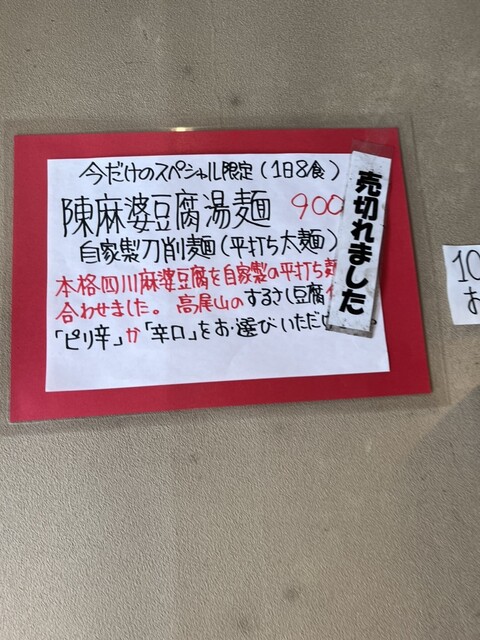 今だけのスペシャル限定(1日8食)
陳麻婆豆腐湯麺 900
自家製刀削麺(平打ち太麺)
本格四川麻婆豆腐を自家製の平打ち麺
合わせました。高尾山のするさし豆腐
「ピリ辛」か「辛口」をお選びいただけ
売切れました
10
お